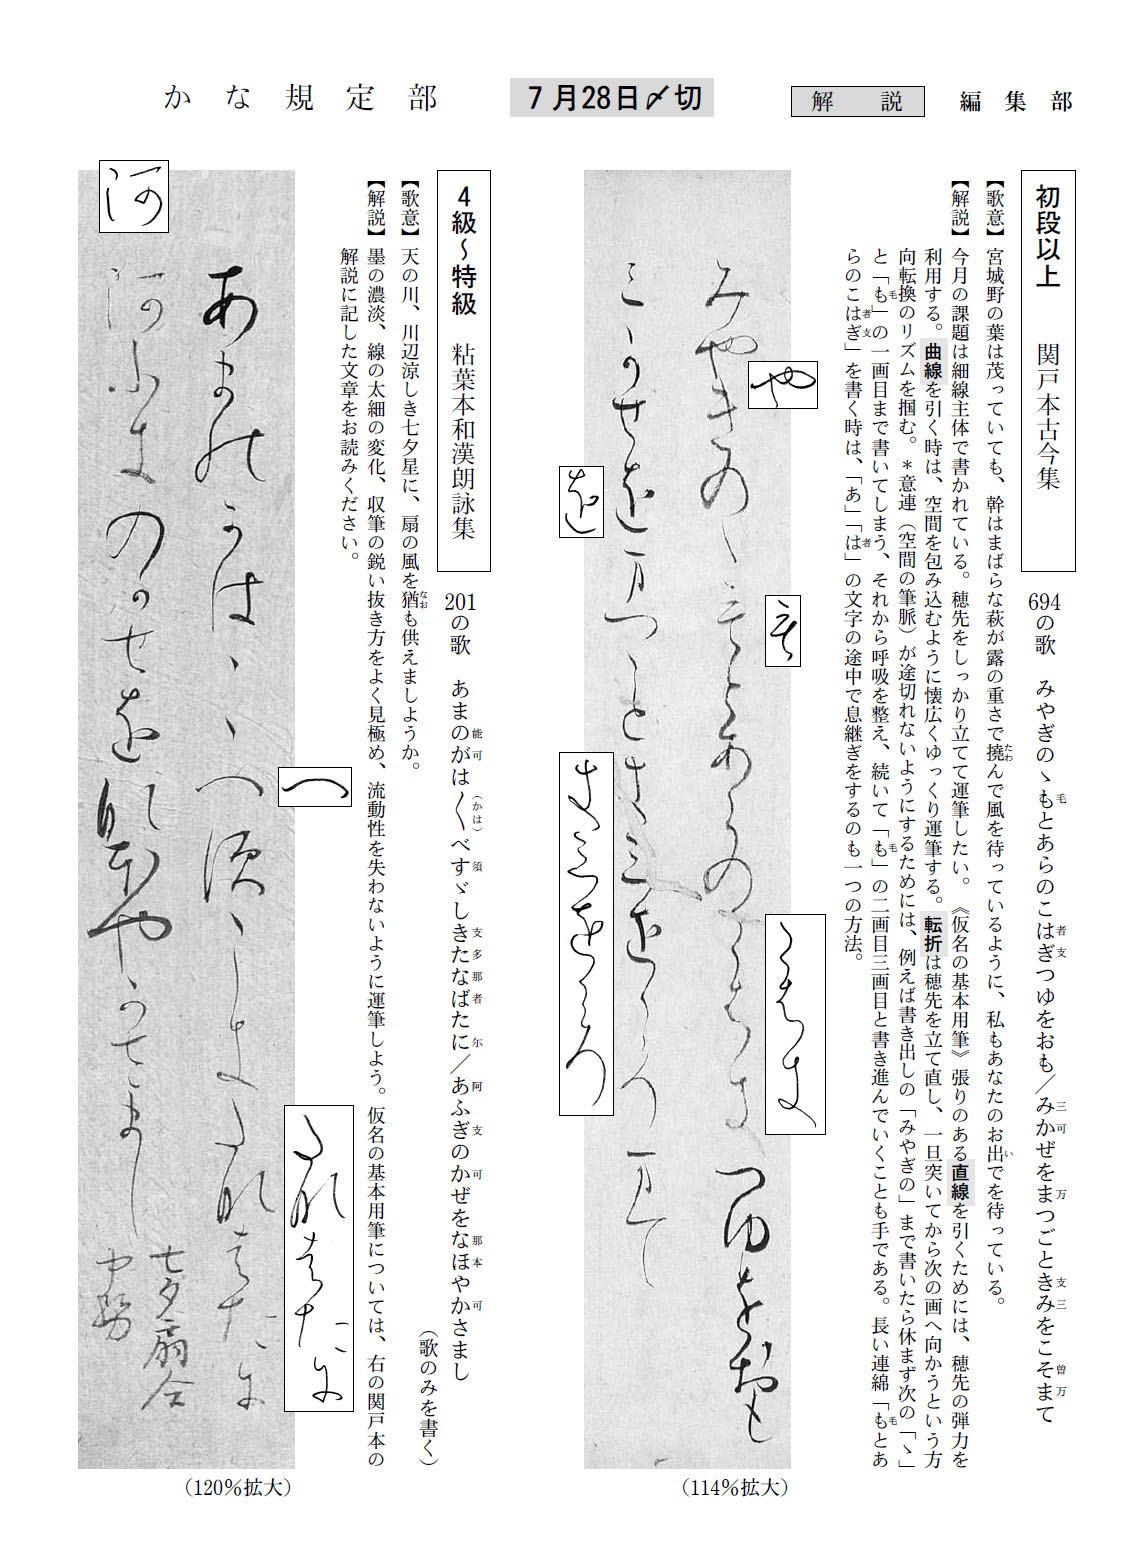 かな規定部
7月28日〆切
解説 編集部
初段以上 関戸本古今集
694の歌 みやぎのヽもとあらのこはぎつゆをおも／みかぜをまつごときみをこそまて
毛 者 支 三 可 万 支 三 曽 万
【歌意】宮城野の葉は茂っていても、幹はまばらな萩が露の重さで撓んで風を待っているように、私もあなたのお出でを待っている。
たわ い
【解説】今月の課題は細線主体で書かれている。穂先をしっかり立てて運筆したい。《仮名の基本用筆》張りのある直線を引くためには、穂先の弾力を
利用する。曲線を引く時は、空間を包み込むように懐広くゆっくり運筆する。転折は穂先を立て直し、一旦突いてから次の画へ向かうという方
向転換のリズムを掴む。＊意連（空間の筆脈）が途切れないようにするためには、例えば書き出しの「みやぎの」まで書いたら休まず次の「ヽ」
と「も」の一画目まで書いてしまう、それから呼吸を整え、続いて「も」の二画目三画目と書き進んでいくことも手である。長い連綿「もとあ
毛 毛 毛
らのこはぎ」を書く時は、「あ」「は」の文字の途中で息継ぎをするのも一つの方法。
者 支 者
（114％拡大）
4級〜特級 粘葉本和漢朗詠集
201の歌 あまのがは〱べすゞしきたなばたに／あふぎのかぜをなほやかさまし
能 可 （かは） 須 支 多 那 者 尓 阿 支 可 那 本 可
（歌のみを書く）
【歌意】天の川、川辺涼しき七夕星に、扇の風を猶も供えましようか。
なお
【解説】墨の濃淡、線の太細の変化、収筆の鋭い抜き方をよく見極め、流動性を失わないように運筆しよう。仮名の基本用筆については、右の関戸本の
解説に記した文章をお読みください。
七夕扇合
中務
（120％拡大）